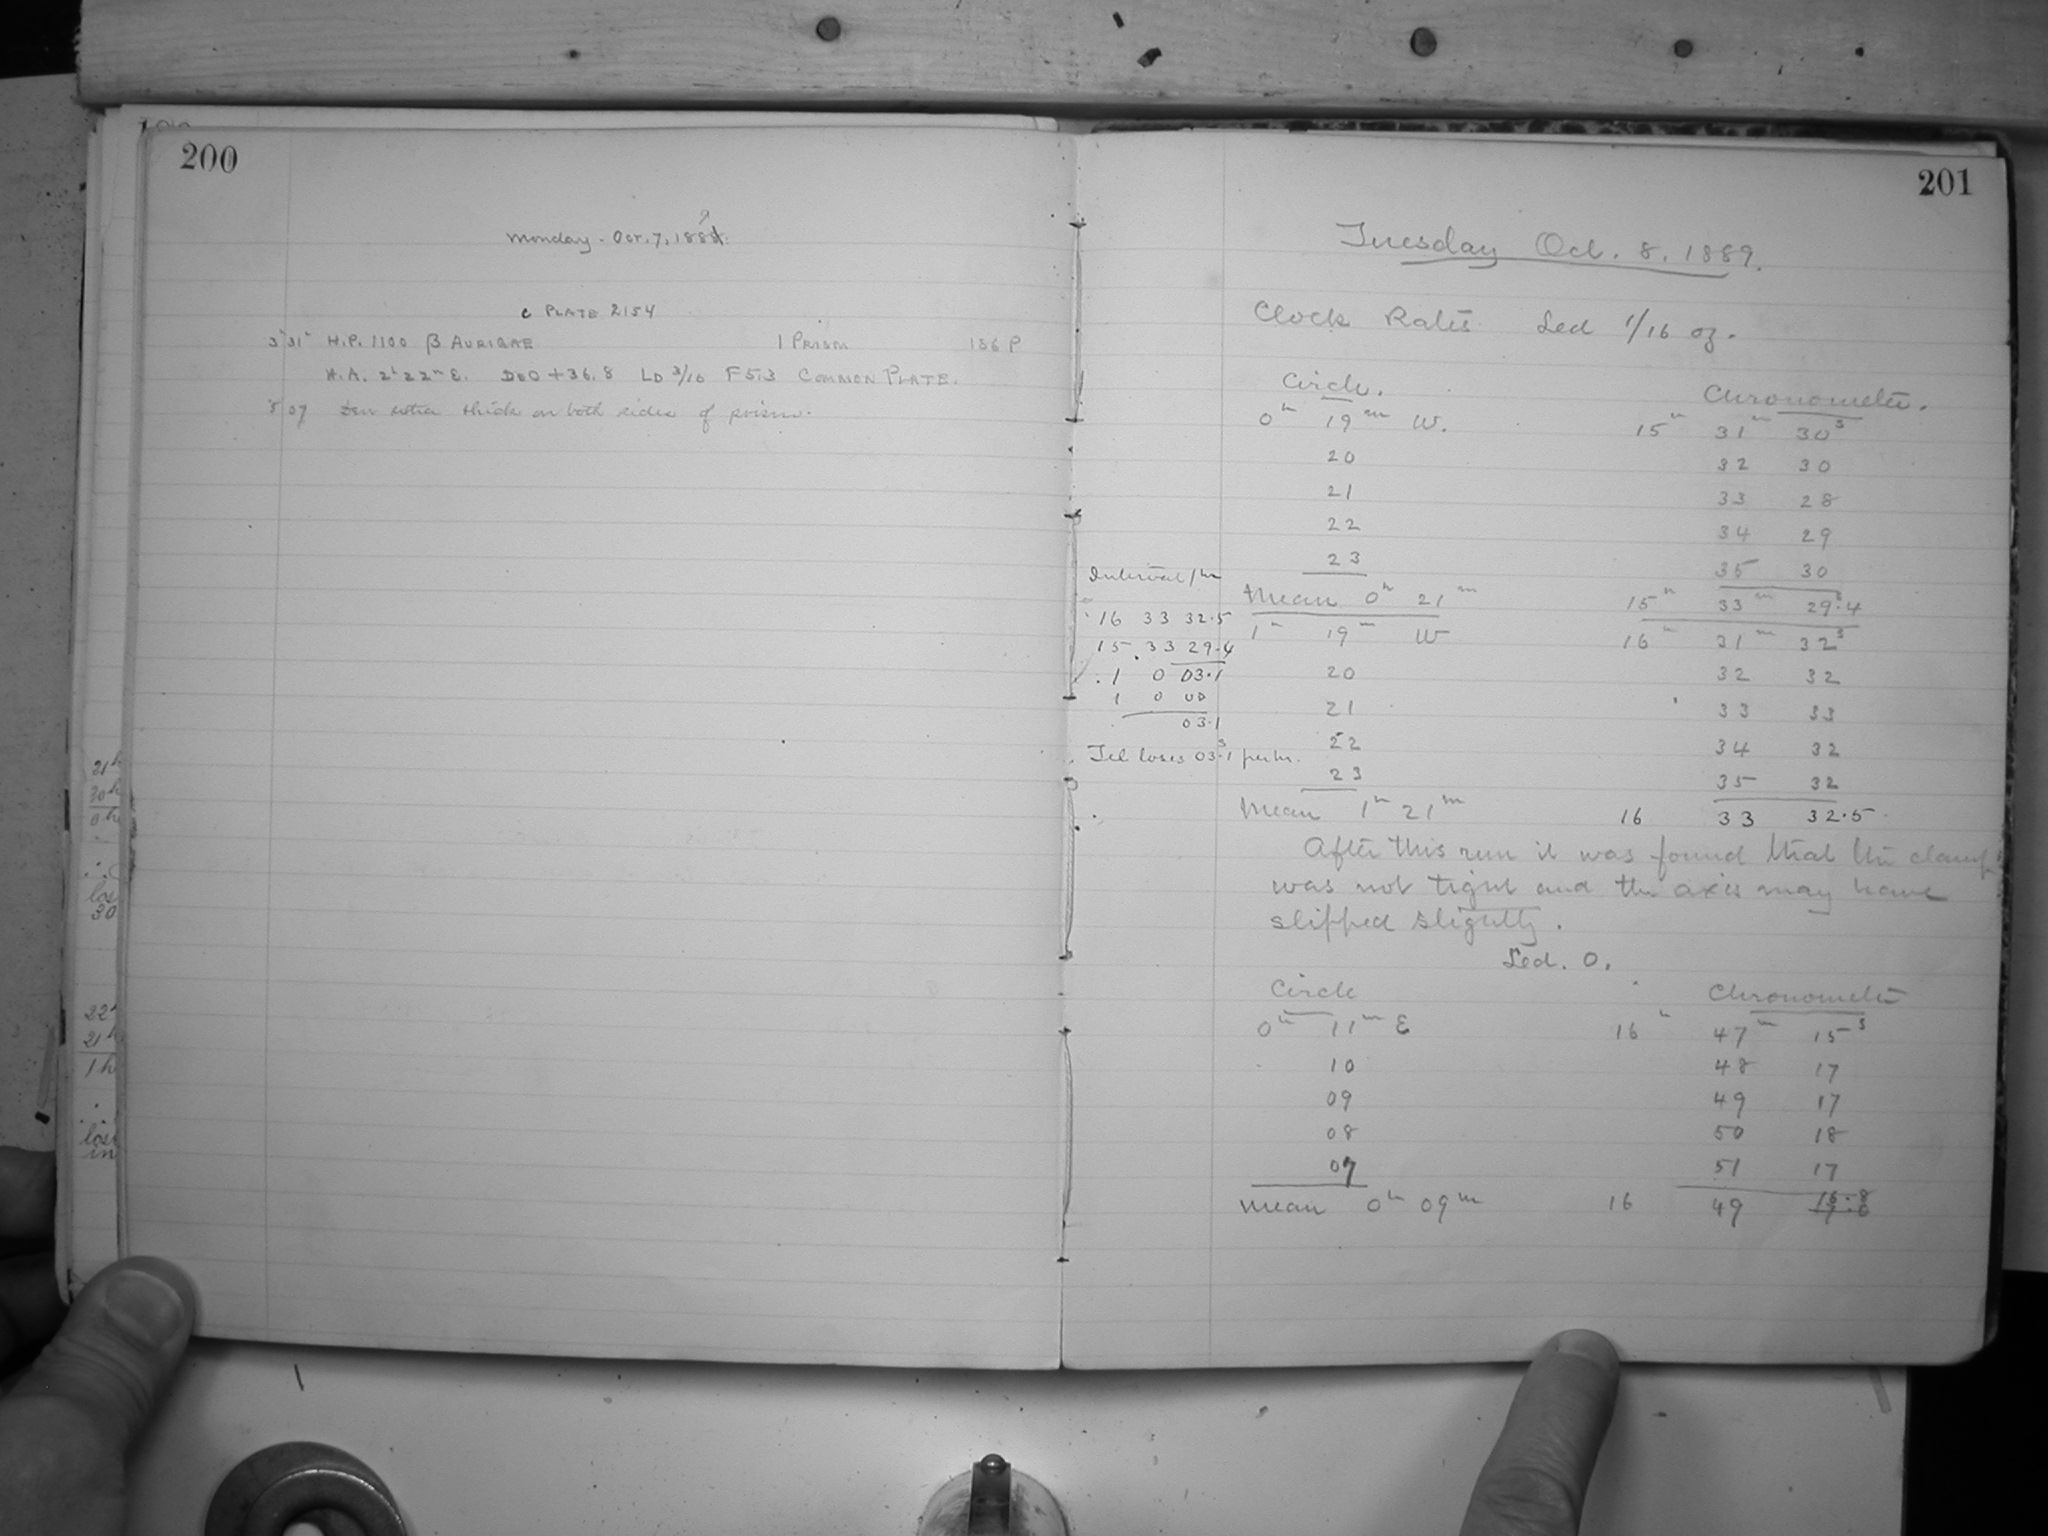 200
Monday. Oct. 7, 1889.
C PLATE 2154
3h 31m H.P. 1100 β AURIGAE 1 PRISM 186 P
H.A. 2h 22m E. DEC +36.8 LD 3/16 F 5.3 COMMON PLATE.
5 07 Dew extra thick on both sides of prism.
21h
20h
0h
los
30
22h
21h
1h
los
in
201
Tuesday Oct. 8. 1889.
Clock Rates. Led 1/16 oz.
Circle. Chronometer.
0h 19m W. 15h 31m 30s
20 32 30
21 33 28
22 34 29
23 35 30
Mean 0h 21m 15h 33m 29s.4
1h 19m W 16h 31m 32s
20 32 32
21 33 33
22 34 32
23 35 32
Mean 1h 21m 16 33 32.5
Interval 1hr
16 33 32.5
15 33 29.4
1 0 03.1
1 0 00
03.1
Tel loses 03s.1 per hr.
After this run it was found that the clamp
was not tight and the axis may have
slipped slightly.
Led. 0.
Circle Chronometer
0h 11m E 16h 47m 15s
10 48 17
09 49 17
08 50 18
07 51 17
Mean 0h 09m 16 49 16.8